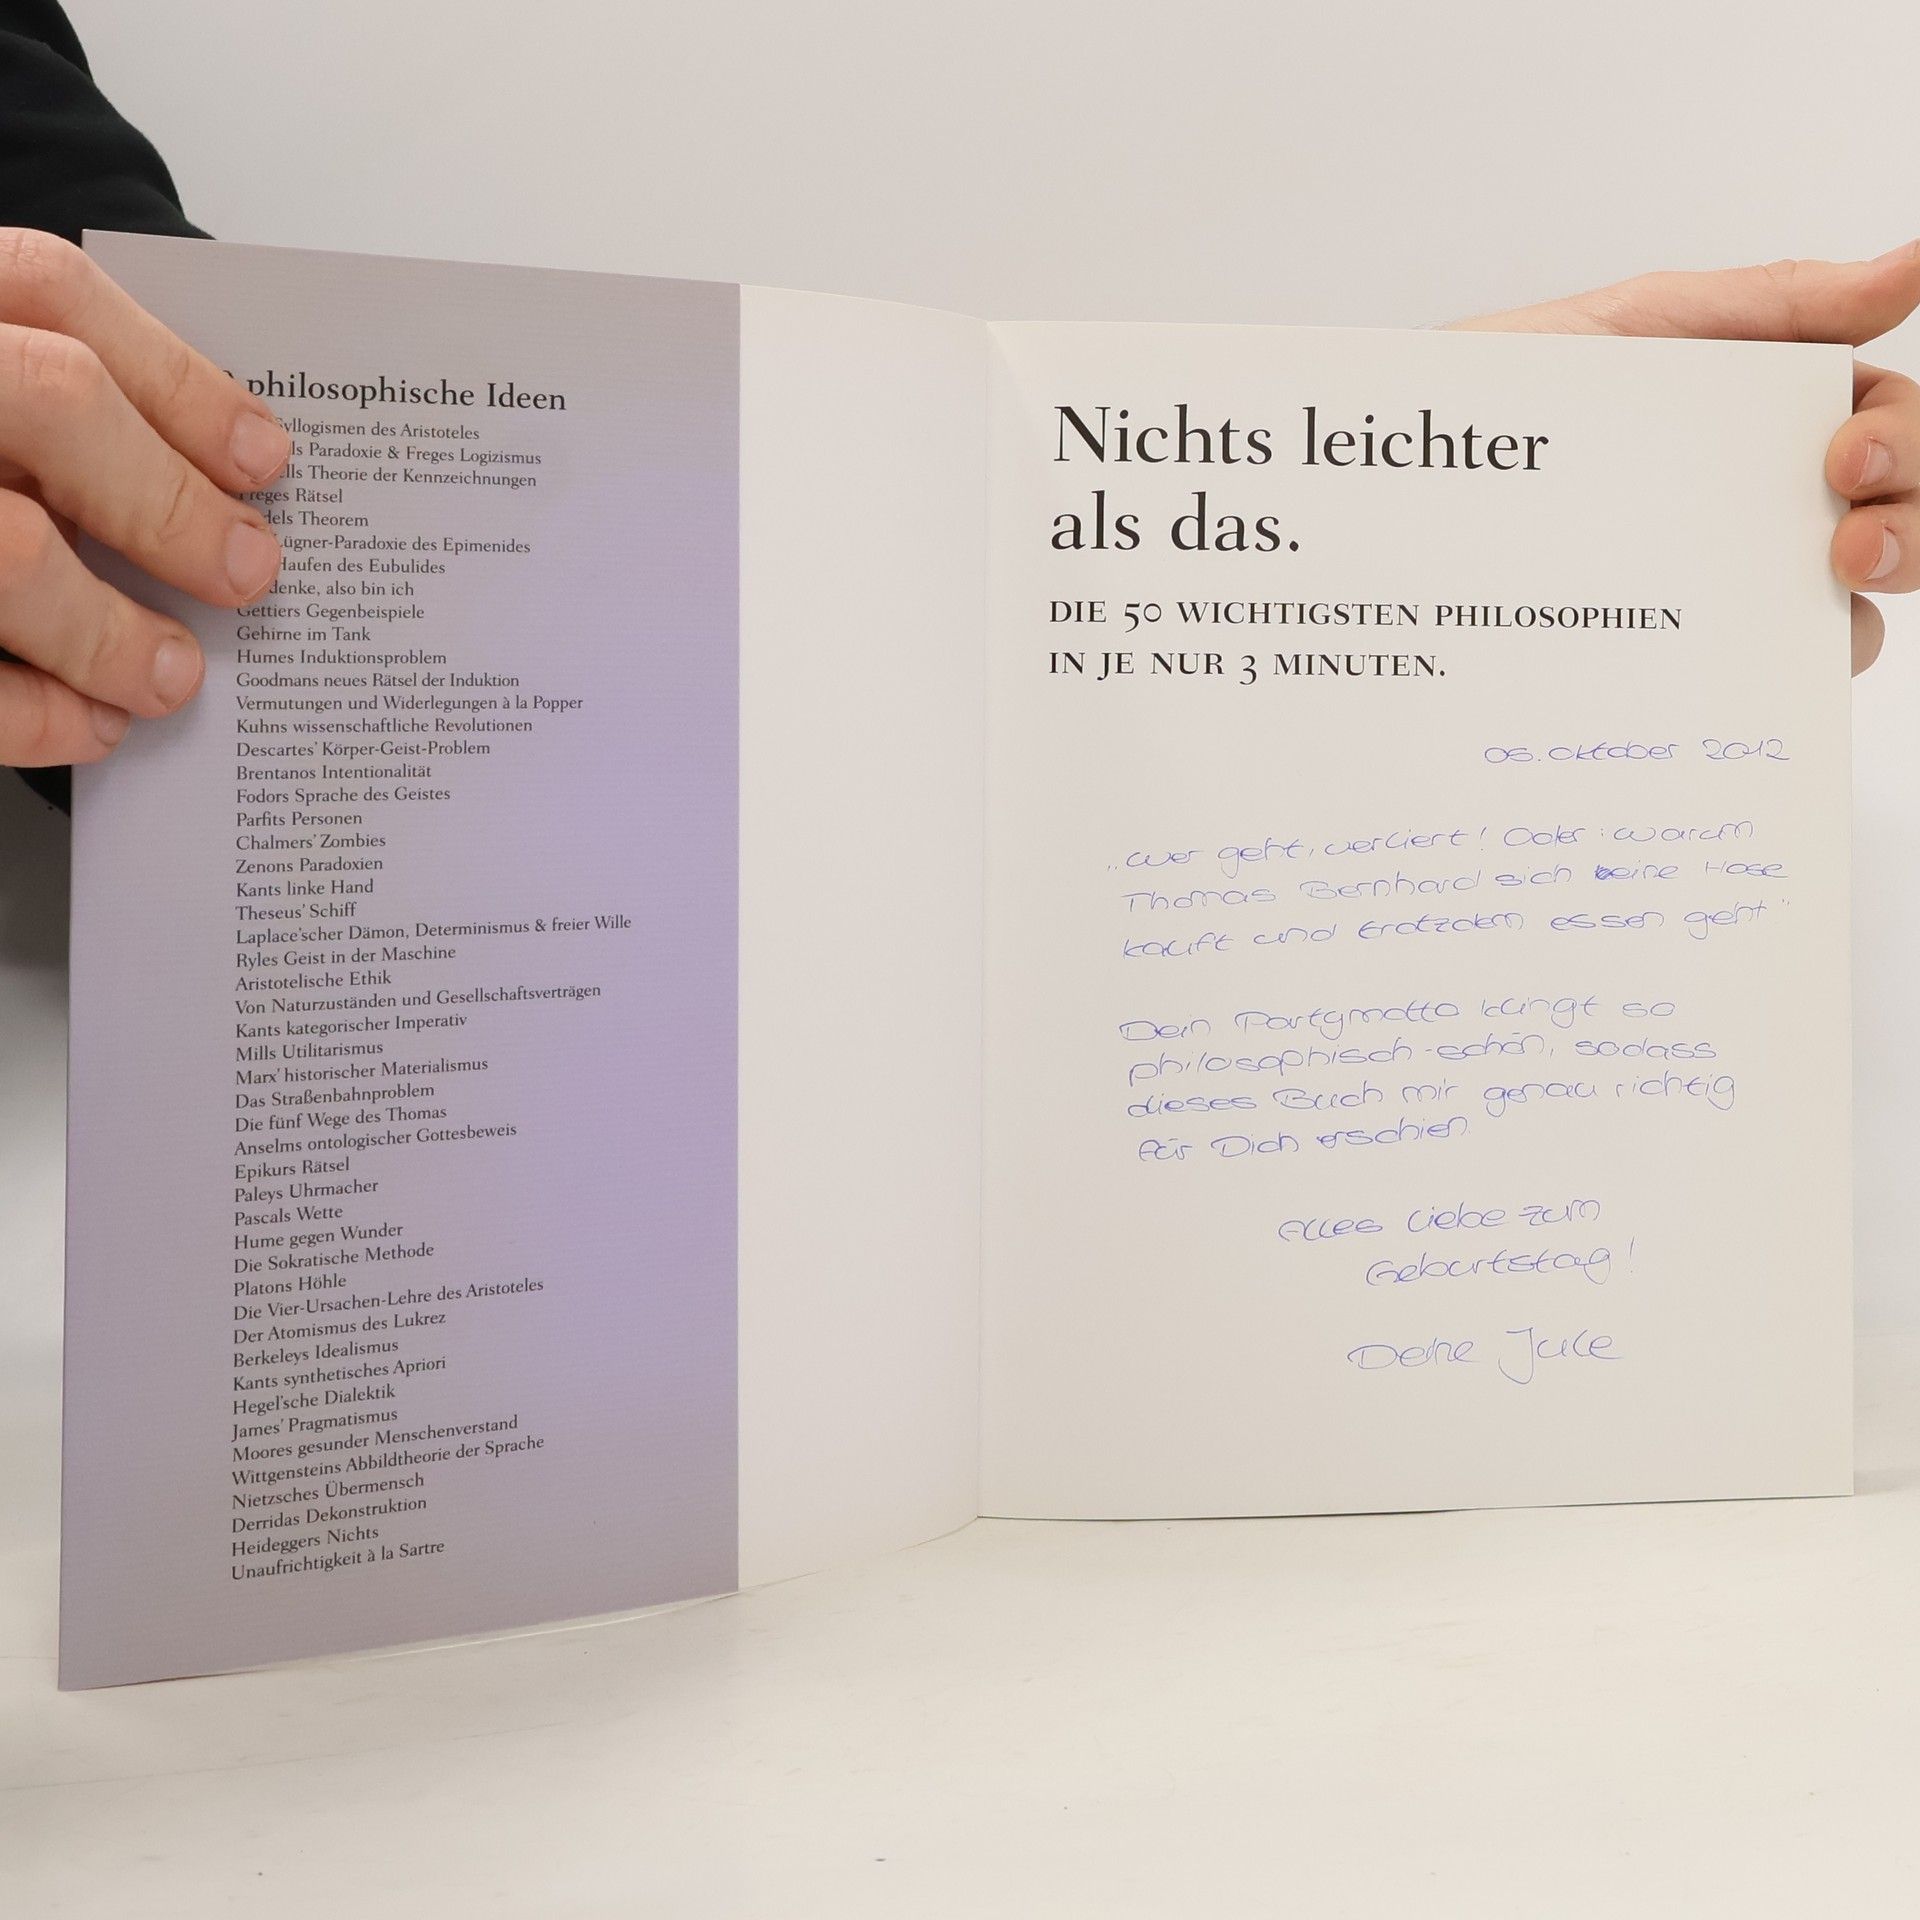 philosophische Ideen
Syllogismen des Aristoteles
Paradoxie & Freges Logizismus
Theorie der Kennzeichnungen
Freges Rätsel
Theorem
Lügner-Paradoxie des Epimenides
Haufen des Eubulides
denke, also bin ich
Gettiers Gegenbeispiele
Gehirne im Tank
Humes Induktionsproblem
Goodmans neues Rätsel der Induktion
Vermutungen und Widerlegungen à la Popper
Kuhns wissenschaftliche Revolutionen
Descartes' Körper-Geist-Problem
Brentanos Intentionalität
Fodors Sprache des Geistes
Parfits Personen
Chalmers' Zombies
Zenons Paradoxien
Kants linke Hand
Theseus' Schiff
Laplace'scher Dämon, Determinismus & freier Wille
Ryles Geist in der Maschine
Aristotelische Ethik
Von Naturzuständen und Gesellschaftsverträgen
Kants kategorischer Imperativ
Mills Utilitarismus
Marx' historischer Materialismus
Das Straßenbahnproblem
Die fünf Wege des Thomas
Anselms ontologischer Gottesbeweis
Epikurs Rätsel
Paleys Uhrmacher
Pascals Wette
Hume gegen Wunder
Die Sokratische Methode
Platons Höhle
Die Vier-Ursachen-Lehre des Aristoteles
Der Atomismus des Lukrez
Berkeleys Idealismus
Kants synthetisches Apriori
Hegel'sche Dialektik
James' Pragmatismus
Moores gesunder Menschenverstand
Wittgensteins Abbildtheorie der Sprache
Nietzsches Übermensch
Derridas Dekonstruktion
Heideggers Nichts
Unaufrichtigkeit à la Sartre
Nichts leichter
als das.
DIE 50 WICHTIGSTEN PHILOSOPHIEN
IN JE NUR 3 MINUTEN.
Oktober 2012
„Wer geht, verliert! Oder: warum
Thomas Bernhard sich keine Hose
kauft und trotzdem essen geht"
Dein Partymotto klingt so
philosophisch-schön, sodass
dieses Buch mir genau richtig
für Dich erschien.
Alles Liebe zum
Geburtstag!
Deine Jule